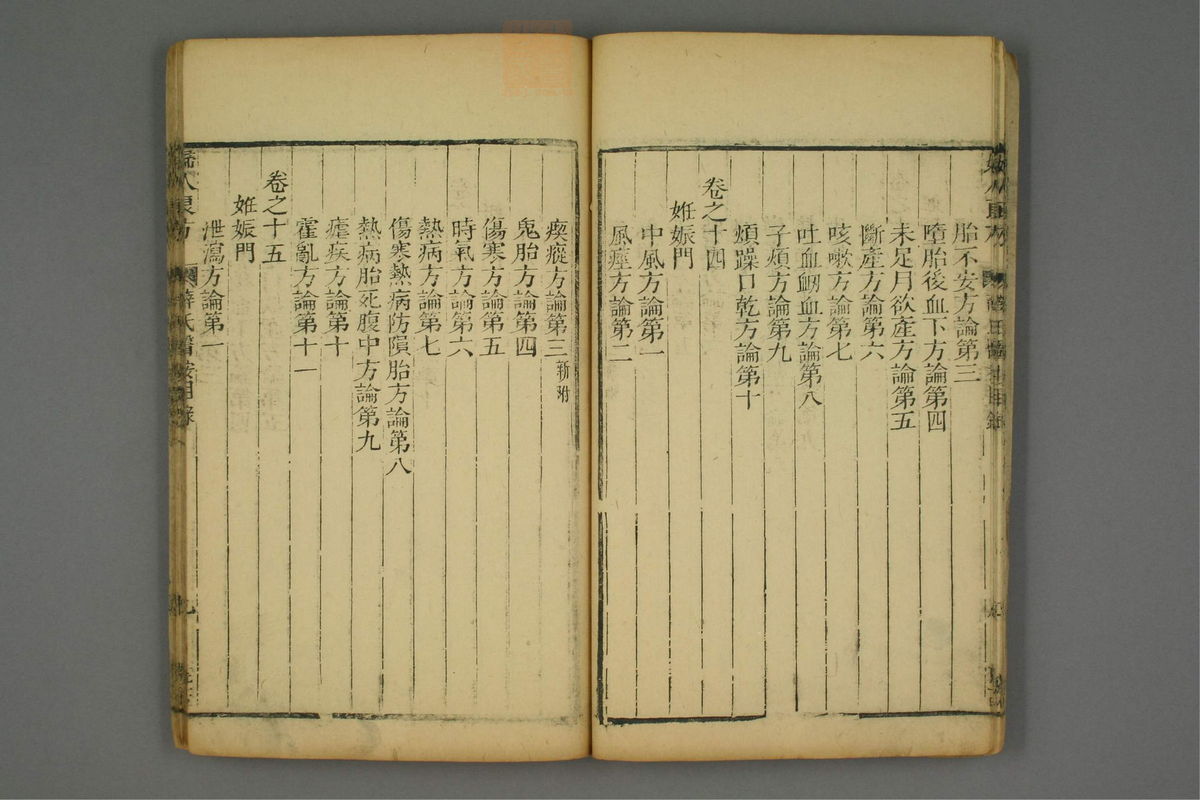 胎不安方論第三
墮胎後血下方論第四
未足月欲產方論第五
斷產方論第六
咳嗽方論第七
吐血衄血方論第八
子煩方論第九
煩躁口乾方論第十
卷之十四
姙娠門
中風方論第一
風痙方論第二
瘈瘲方論第三新附
鬼胎方論第四
傷寒方論第五
時氣方論第六
熱病方論第七
傷寒熱病防隕胎方論第八
熱病胎死腹中方論第九
瘧疾方論第十
霍亂方論第十一
卷之十五
姙娠門
泄瀉方論第一
婦人良方 薛氏醫按目錄 九